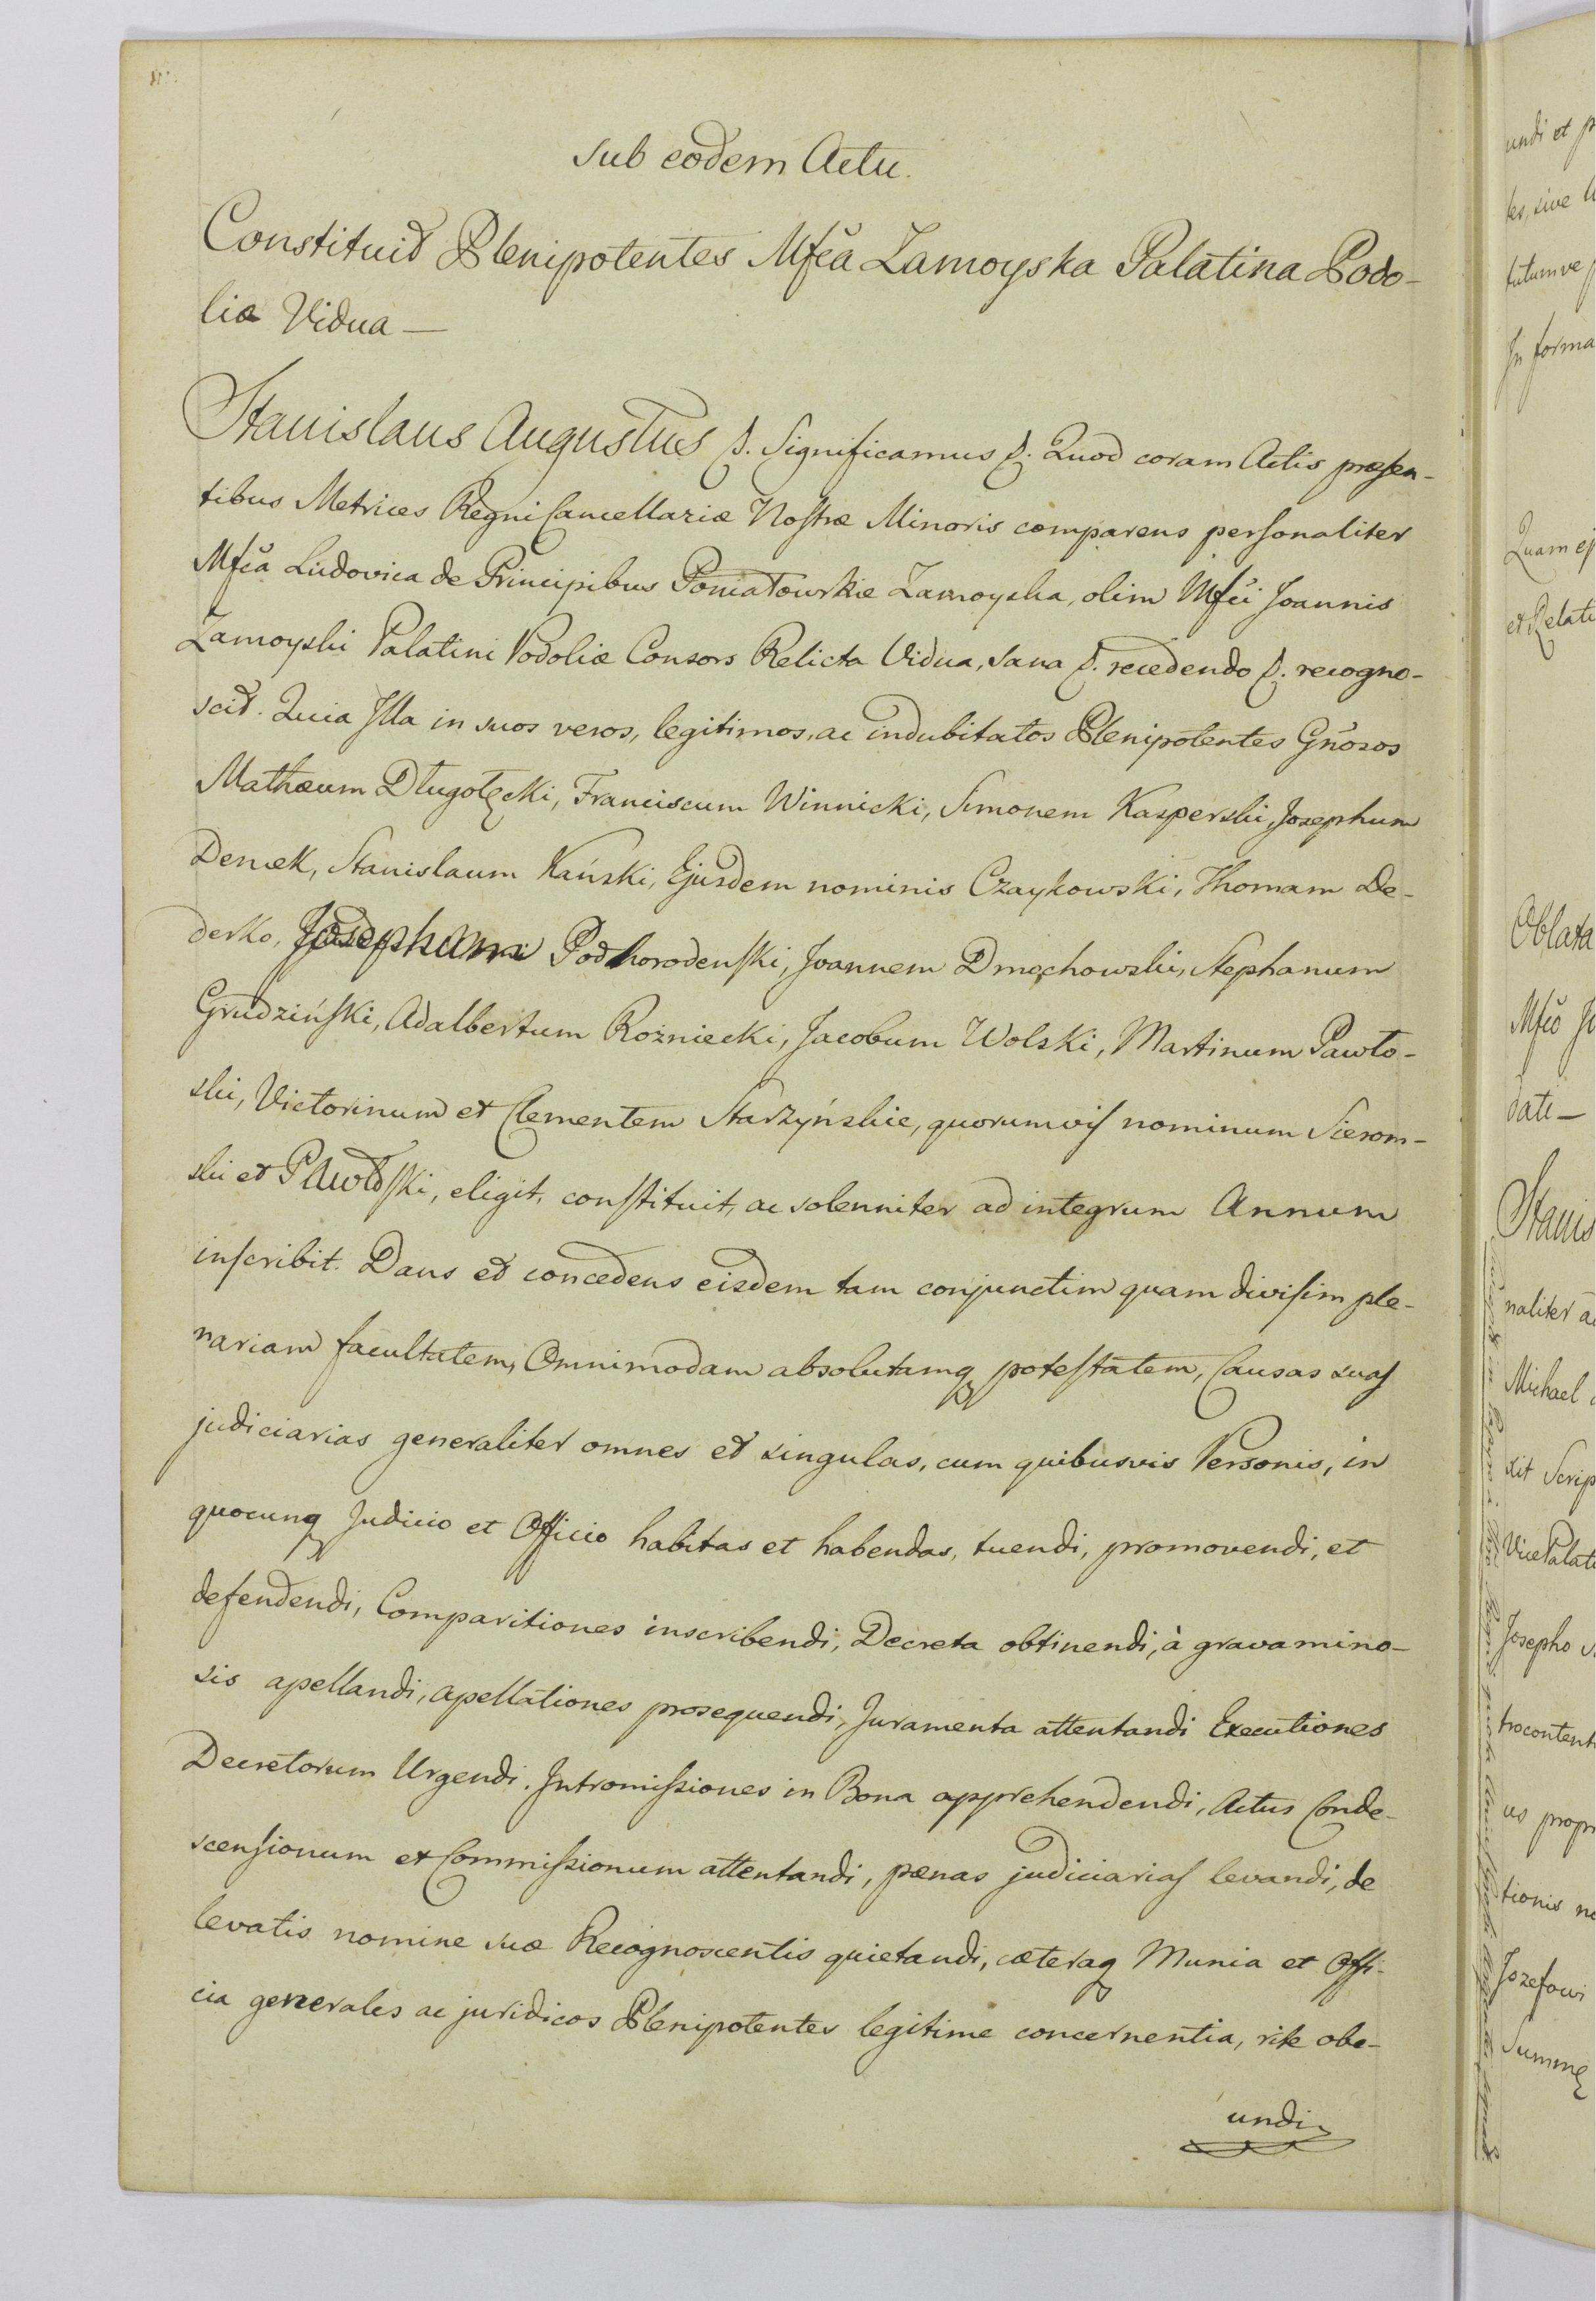 Sub eodem Actu.
Constituit Plenipotentes Mfca Zamoyska Palatina Podo-
liæ Vidua —
Stanislaus Augustus &. Significamus &. Quod coram Actis præsen-
tibus Metrices Regni Cancellariæ Nostræ Minoris comparens personaliter
Mfca Ludovica de Principibus Poniatowskie Zamoyska, olim Mfci Joannis
Zamoyski Palatini Podoliæ Consors Relicta Vidua, sana &. recedendo &. recogno-
scit. Quia Illa in suos veros, legitimos, ac indubitatos Plenipotentes Gnosos
Mathæum Długołęcki, Franciscum Winnicki, Simonem Kasperski, Josephum
Denek, Stanislaum Kański, Ejusdem nominis Czaykowski, Thomam De-
derko, Josephum Podhorodenski, Joannem Dmochowski, Stephanum
Grudziński, Adalbertum Rożniecki, Jacobum Wolski, Martinum Pawło-
ski, Victorinum et Clementem Starzyńskie, quorumvis nominum Sierom-
ski et Pawłoski, eligit, constituit, ac solenniter ad integrum Annum
inscribit. Dans et concedens eisdem tam conjunctim quam divisim ple-
nariam facultatem, Omnimodam absolutamq potestatem, Causas suas
judiciarias generaliter omnes et singulas, cum quibusvis Personis, in
quocunq Judicio et Officio habitas et habendas, tuendi, promovendi, et
defendendi, Comparitiones inscribendi, Decreta obtinendi, à gravamino-
sis apellandi, apellationes prosequendi, Juramenta attentandi Executiones
Decretorum Urgendi. Intromissiones in Bona apprehendendi, Actus Conde-
scensionum et Commissionum attentandi, pænas judiciarias levandi, de
levatis nomine suæ Recognoscentis quietandi, cæteraq Munia et Offi-
cia generales ac juridicos Plenipotentes legitime concernentia, rite obe-
undi
undi et p
les, sive
tutumve
In forma
Quam ej
et Relati
Oblata
Mfco J
dati —
Stanis
naliter a
Michael
xit Scrip
Vice Palati
Josepho
trocontent
us propr
tionis no
Jozefowi
Summę